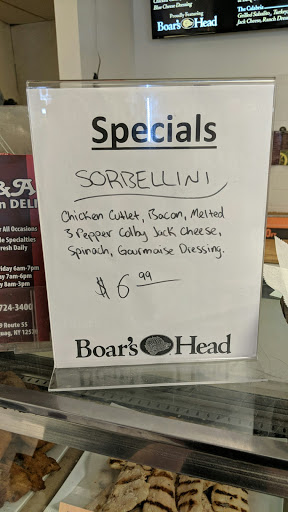 Blue Cheese Dressing
Proudly Featuring
Boar's Head
The Calabria
Grilled Sabollio, Turkey,
Jack Cheese, Ranch Dress
Specials
SORBELLINI
Chicken Cutlet, Bacon, Melted
3 Pepper Colby Jack Cheese,
Spinach, Gourmaise Dressing.
$6.99
Boar's Head
&A
n DELI
r All Occasions
e Specialties
resh Daily
iday 6am-7pm
y 7am-6pm
y 8am-3pm
724-3400
9 Route 55
uag, NY 1253